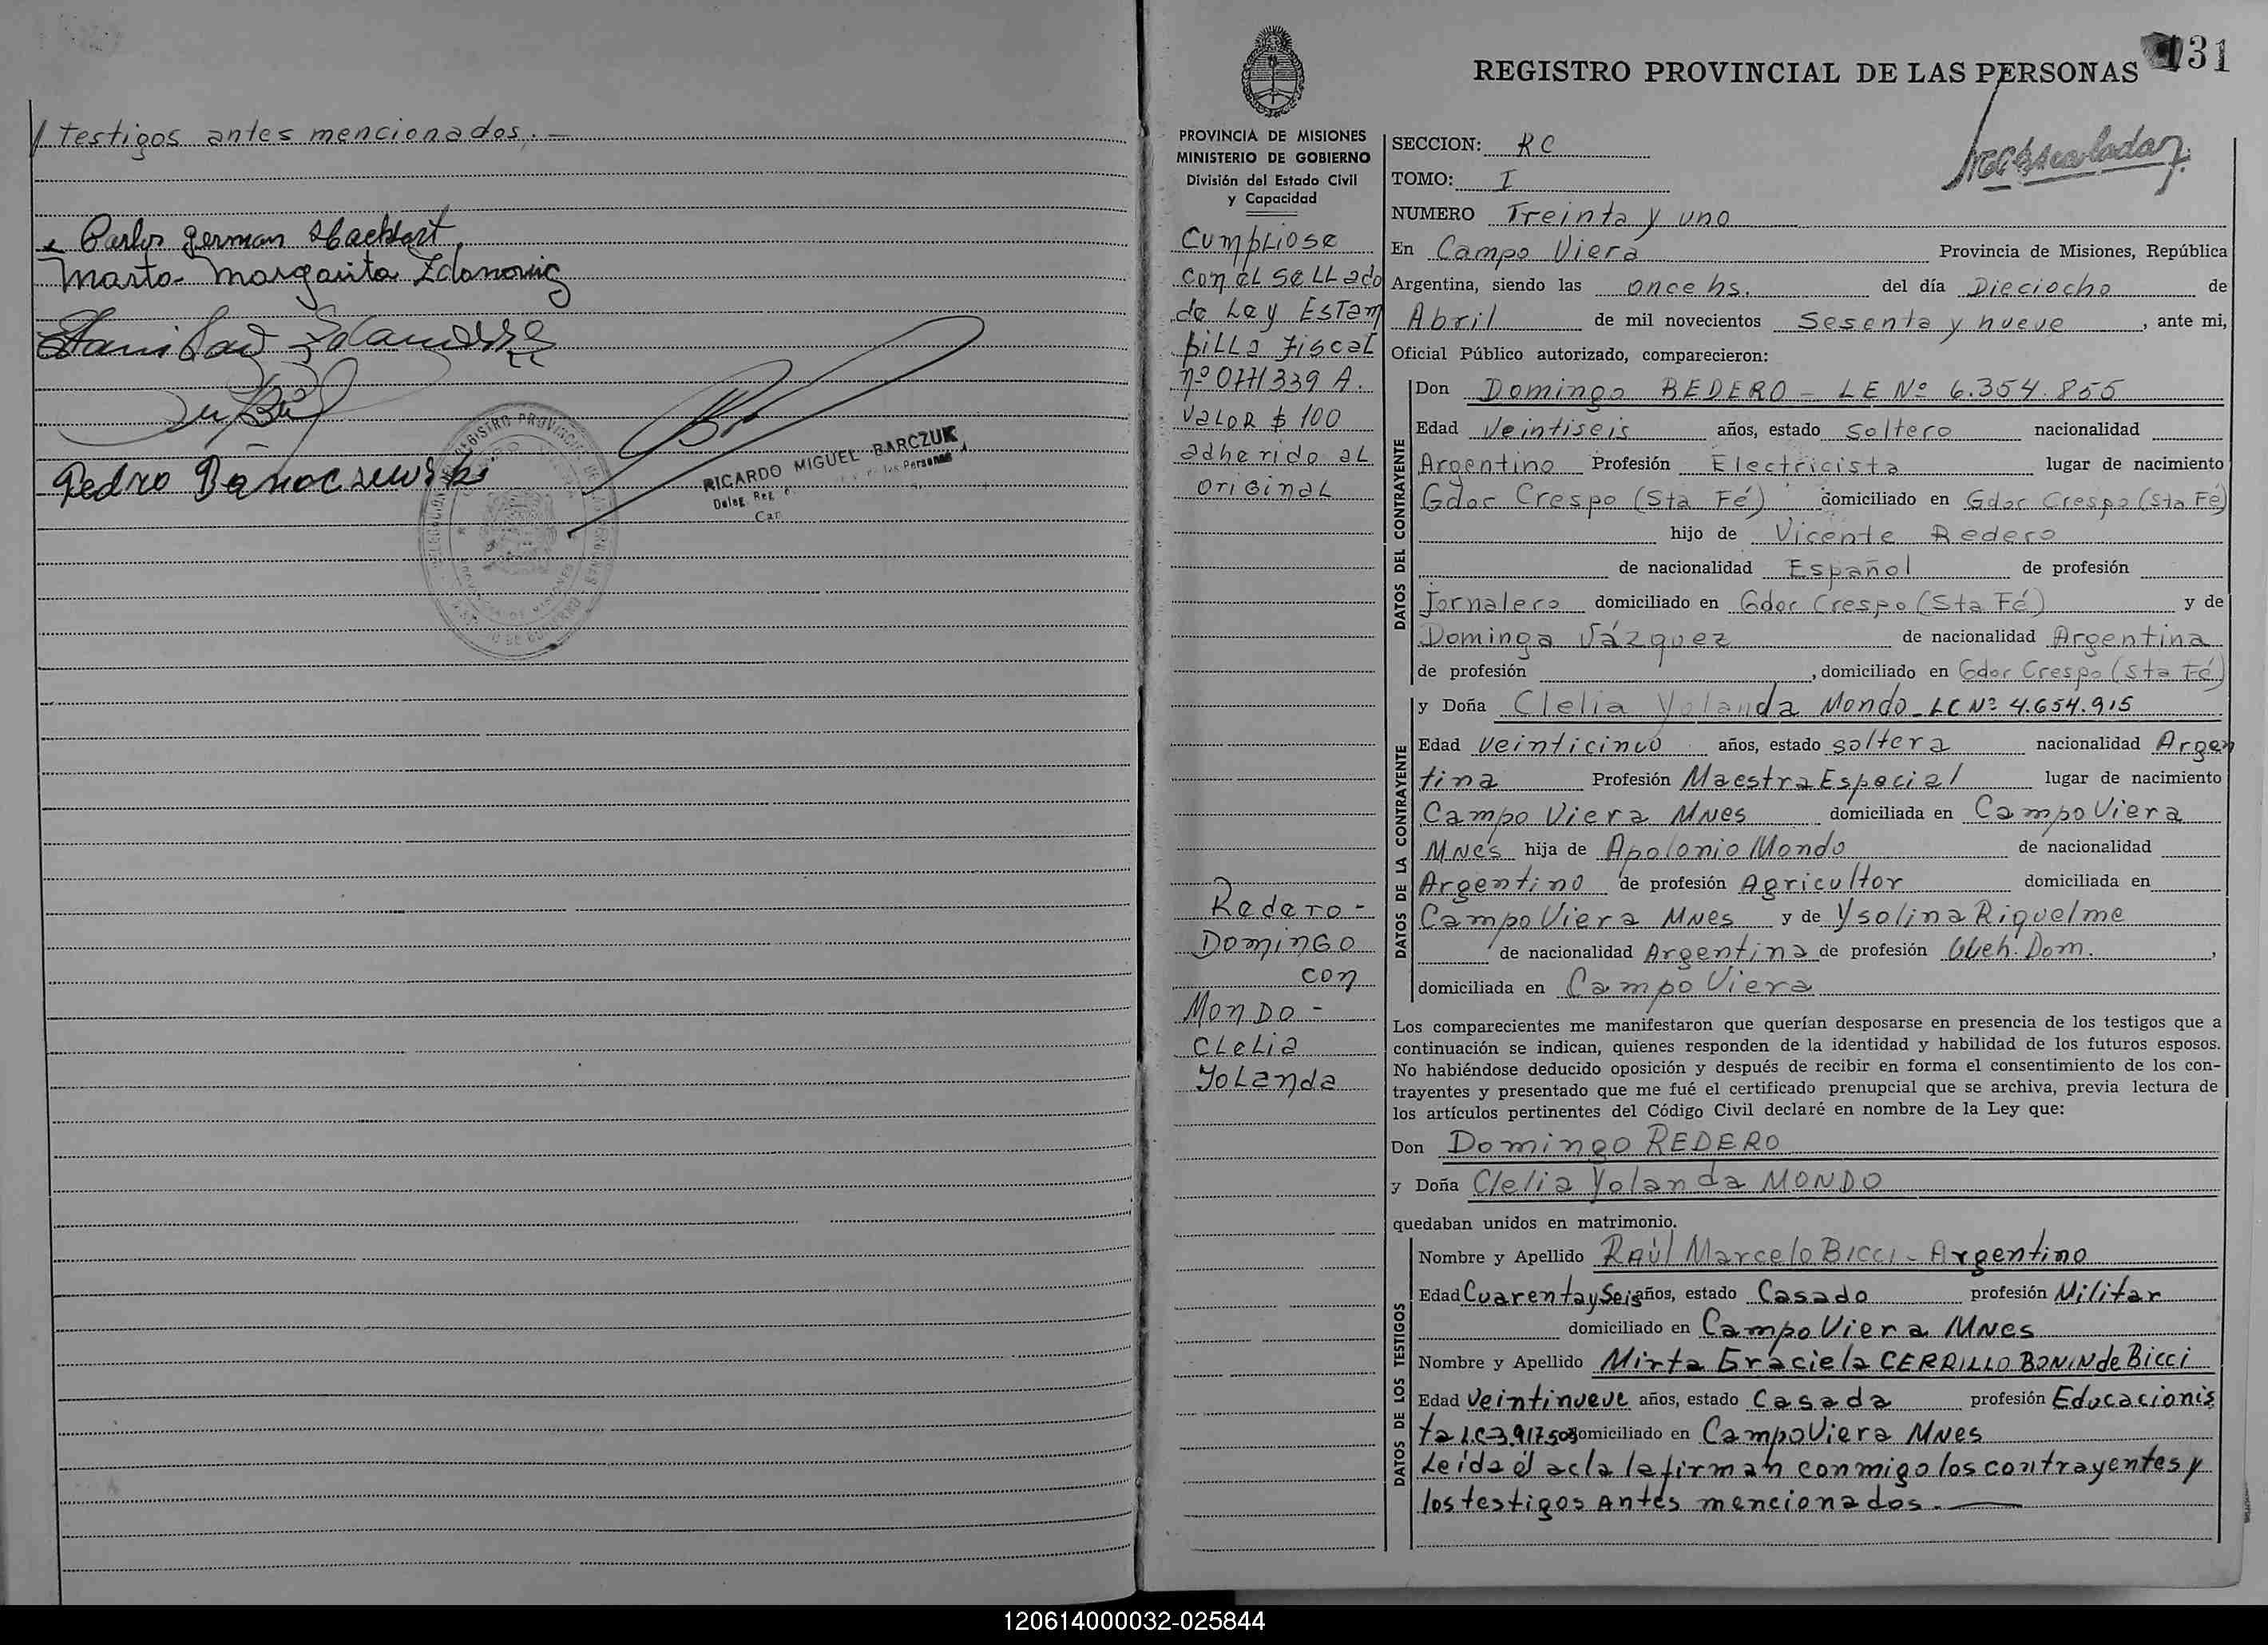 testigos antes mencionados. —
Carlos German
Marta Margarita
Pedro
RICARDO MIGUEL BARCZUK
Deleg. Reg.
131
REGISTRO PROVINCIAL DE LAS PERSONAS
PROVINCIA DE MISIONES
MINISTERIO DE GOBIERNO
División del Estado Civil
y Capacidad
Cumpliose
con el sellado
de Ley Estam
pilla fiscal
nº 0771339 A.
Valor $ 100
adherido al
original
Redero -
Domingo
con
Mondo -
Clelia
Yolanda
SECCION: RC
TOMO: I
NUMERO Treinta y uno
En Campo Viera Provincia de Misiones, República
Argentina, siendo las once hs. del día Dieciocho de
Abril de mil novecientos Sesenta y nueve, ante mi,
Oficial Público autorizado, comparecieron:
DATOS DEL CONTRAYENTE
Don Domingo REDERO - LE Nº 6.354.855
Edad Veintiseis años, estado Soltero nacionalidad
Argentino Profesión Electricista lugar de nacimiento
Gdor Crespo (Sta Fé) domiciliado en Gdor Crespo (Sta Fé)
hijo de Vicente Redero
de nacionalidad Español de profesión
Jornalero domiciliado en Gdor Crespo (Sta Fé) y de
Dominga Vázquez de nacionalidad Argentina
de profesión , domiciliado en Gdor Crespo (Sta Fé)
DATOS DE LA CONTRAYENTE
y Doña Clelia Yolanda Mondo - LC Nº 4.654.915
Edad Veinticinco años, estado soltera nacionalidad Argen
tina Profesión Maestra Especial lugar de nacimiento
Campo Viera MNes domiciliada en Campo Viera
MNes hija de Apolonio Mondo de nacionalidad
Argentino de profesión Agricultor domiciliada en
Campo Viera MNes y de Ysolina Riquelme
de nacionalidad Argentina de profesión Queh. Dom. ,
domiciliada en Campo Viera
Los comparecientes me manifestaron que querían desposarse en presencia de los testigos que a
continuación se indican, quienes responden de la identidad y habilidad de los futuros esposos.
No habiéndose deducido oposición y después de recibir en forma el consentimiento de los con-
trayentes y presentado que me fué el certificado prenupcial que se archiva, previa lectura de
los artículos pertinentes del Código Civil declaré en nombre de la Ley que:
Don Domingo REDERO
y Doña Clelia Yolanda MONDO
quedaban unidos en matrimonio.
DATOS DE LOS TESTIGOS
Nombre y Apellido RAúl Marcelo BICCI - Argentino
Edad Cuarenta y Seis años, estado Casado profesión Militar
domiciliado en Campo Viera MNes
Nombre y Apellido Mirta Graciela CERRILLO BONIN de Bicci
Edad Veintinueve años, estado Casada profesión Educacionis
ta domiciliado en Campo Viera MNes
Leída el acta la firman conmigo los contrayentes y
los testigos Antes mencionados. —
120614000032-025844